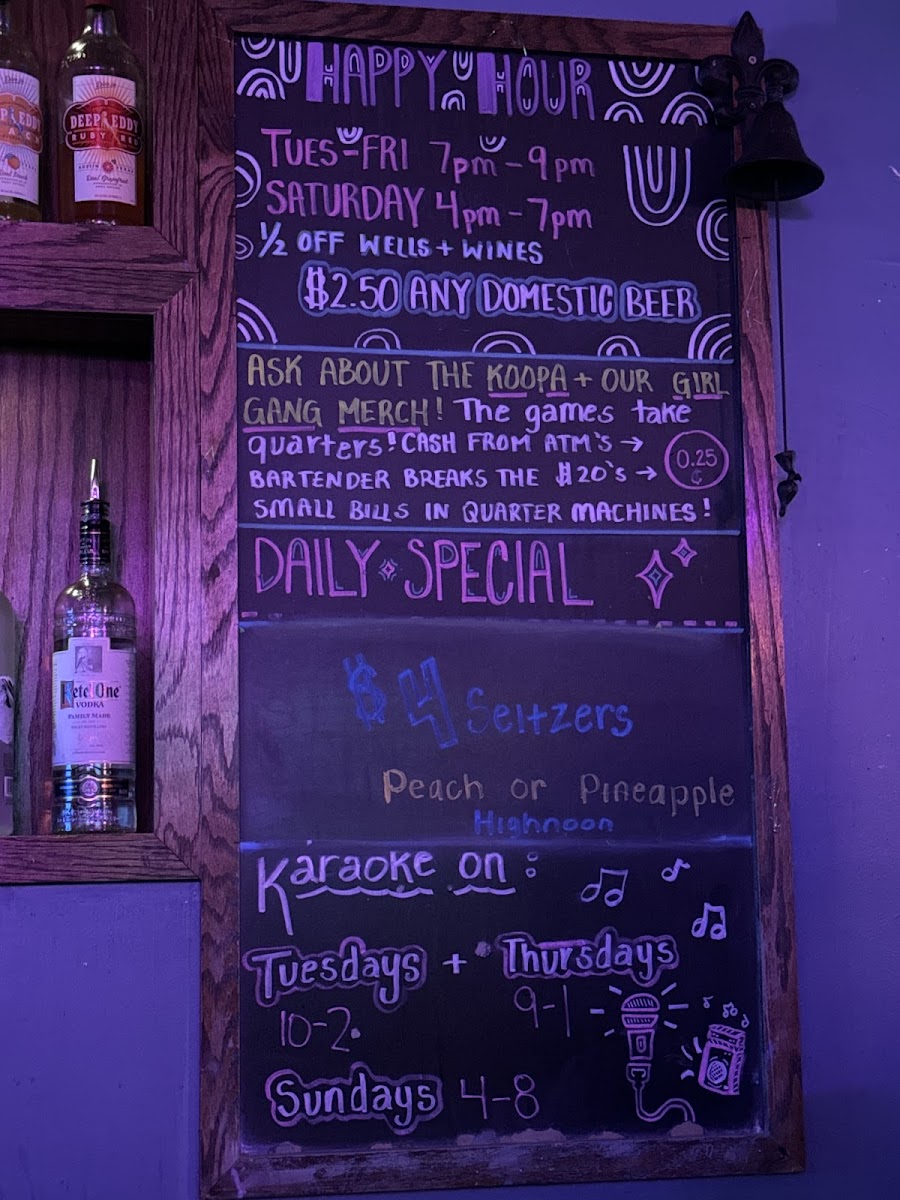 HAPPY HOUR
TUES-FRI 7pm-9pm
SATURDAY 4pm-7pm
1/2 OFF WELLS + WINES
$2.50 ANY DOMESTIC BEER
ASK ABOUT THE KOOPA + OUR GIRL
GANG MERCH! The games take
quarters! CASH FROM ATM'S →
BARTENDER BREAKS THE $20's →
0.25
¢
SMALL BILLS IN QUARTER MACHINES!
DAILY SPECIAL
$4 Seltzers
Peach or Pineapple
Highnoon
Karaoke on:
Tuesdays + Thursdays
10-2
9-1
Sundays 4-8
DEEP EDDY
RUBY RED
Ketel One
VODKA
FAMILY MADE